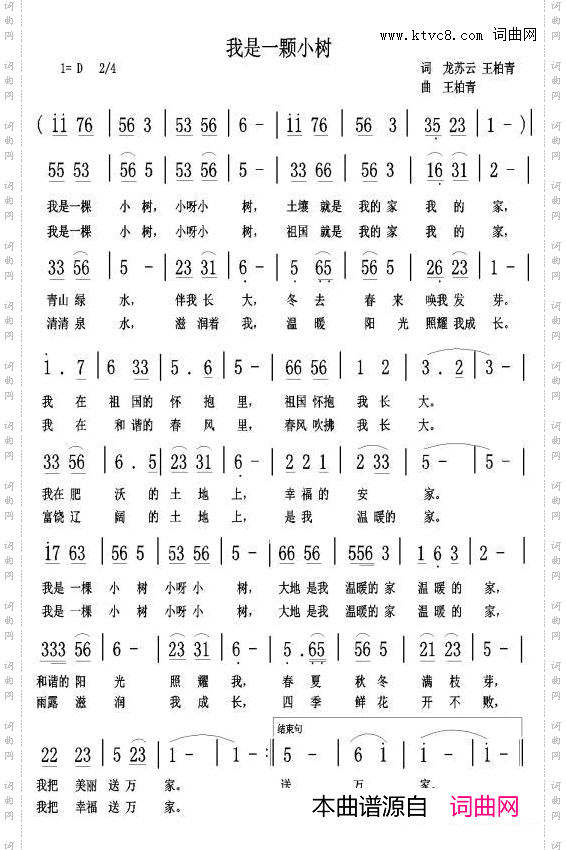 www.ktvc8.com 词曲网
我是一颗小树
1= D 2/4
词 龙苏云 王柏青
曲 王柏青
( i i 76 | 56 3 | 53 56 | 6 - | i i 76 | 56 56 | 35 23 | 1 - ) |
55 53 | 56 5 | 53 56 | 5 - | 33 66 | 56 3 | 16 31 | 2 - |
我是一棵 小 树, 小呀小 树, 土壤 就是 我的 家 我 的 家,
我是一棵 小 树, 小呀小 树, 祖国 就是 我的 家 我 的 家,
33 56 | 5 - | 23 31 | 6 - | 5 65 | 56 5 | 26 23 | 1 - |
青山 绿 水, 伴我 长 大, 冬 去 春 来 唤我 发 芽。
清清 泉 水, 滋 润着 我, 温 暖 阳 光 照耀 我成 长。
1 . 7 | 6 33 | 5 . 6 | 5 - | 66 56 | 1 2 | 3 . 2 | 3 - |
我 在 祖 国的 怀 抱 里, 祖国 怀抱 我 长 大。
我 在 和 谐的 春 风 里, 春风 吹拂 我 长 大。
33 56 | 6 . 5 | 23 31 | 6 - | 2 2 1 | 2 33 | 5 - | 5 - |
我在 肥 沃 的 土 地 上, 幸 福 的 安 家。
富饶 辽 阔 的 土 地 上, 是 我 温 暖的 家。
i7 63 | 56 5 | 23 23 | 5 - | 66 56 | 556 3 | 1 6 3 | 2 - |
我是 一棵 小 树 小呀 小 树, 大地 是我 温暖的 家 温 暖 的 家,
我是 一棵 小 树 小呀 小 树, 大地 是我 温暖的 家 温 暖 的 家,
333 56 | 6 - | 23 31 | 6 - | 5. 65 | 56 5 | 23 23 | 5 - |
和谐的 阳 光 照 耀 我, 春 夏 秋 冬 满 枝 芽,
雨露 滋 润 我 成 长, 四 季 鲜 花 开 不 败,
结束句
22 23 | 5 23 | 1 - | 1 - :| 5 - | 6 i | i - | i - ||
我把 美丽 送 万 家。 送 万 家。
我把 幸福 送 万 家。
本曲谱源自 词曲网
词曲网